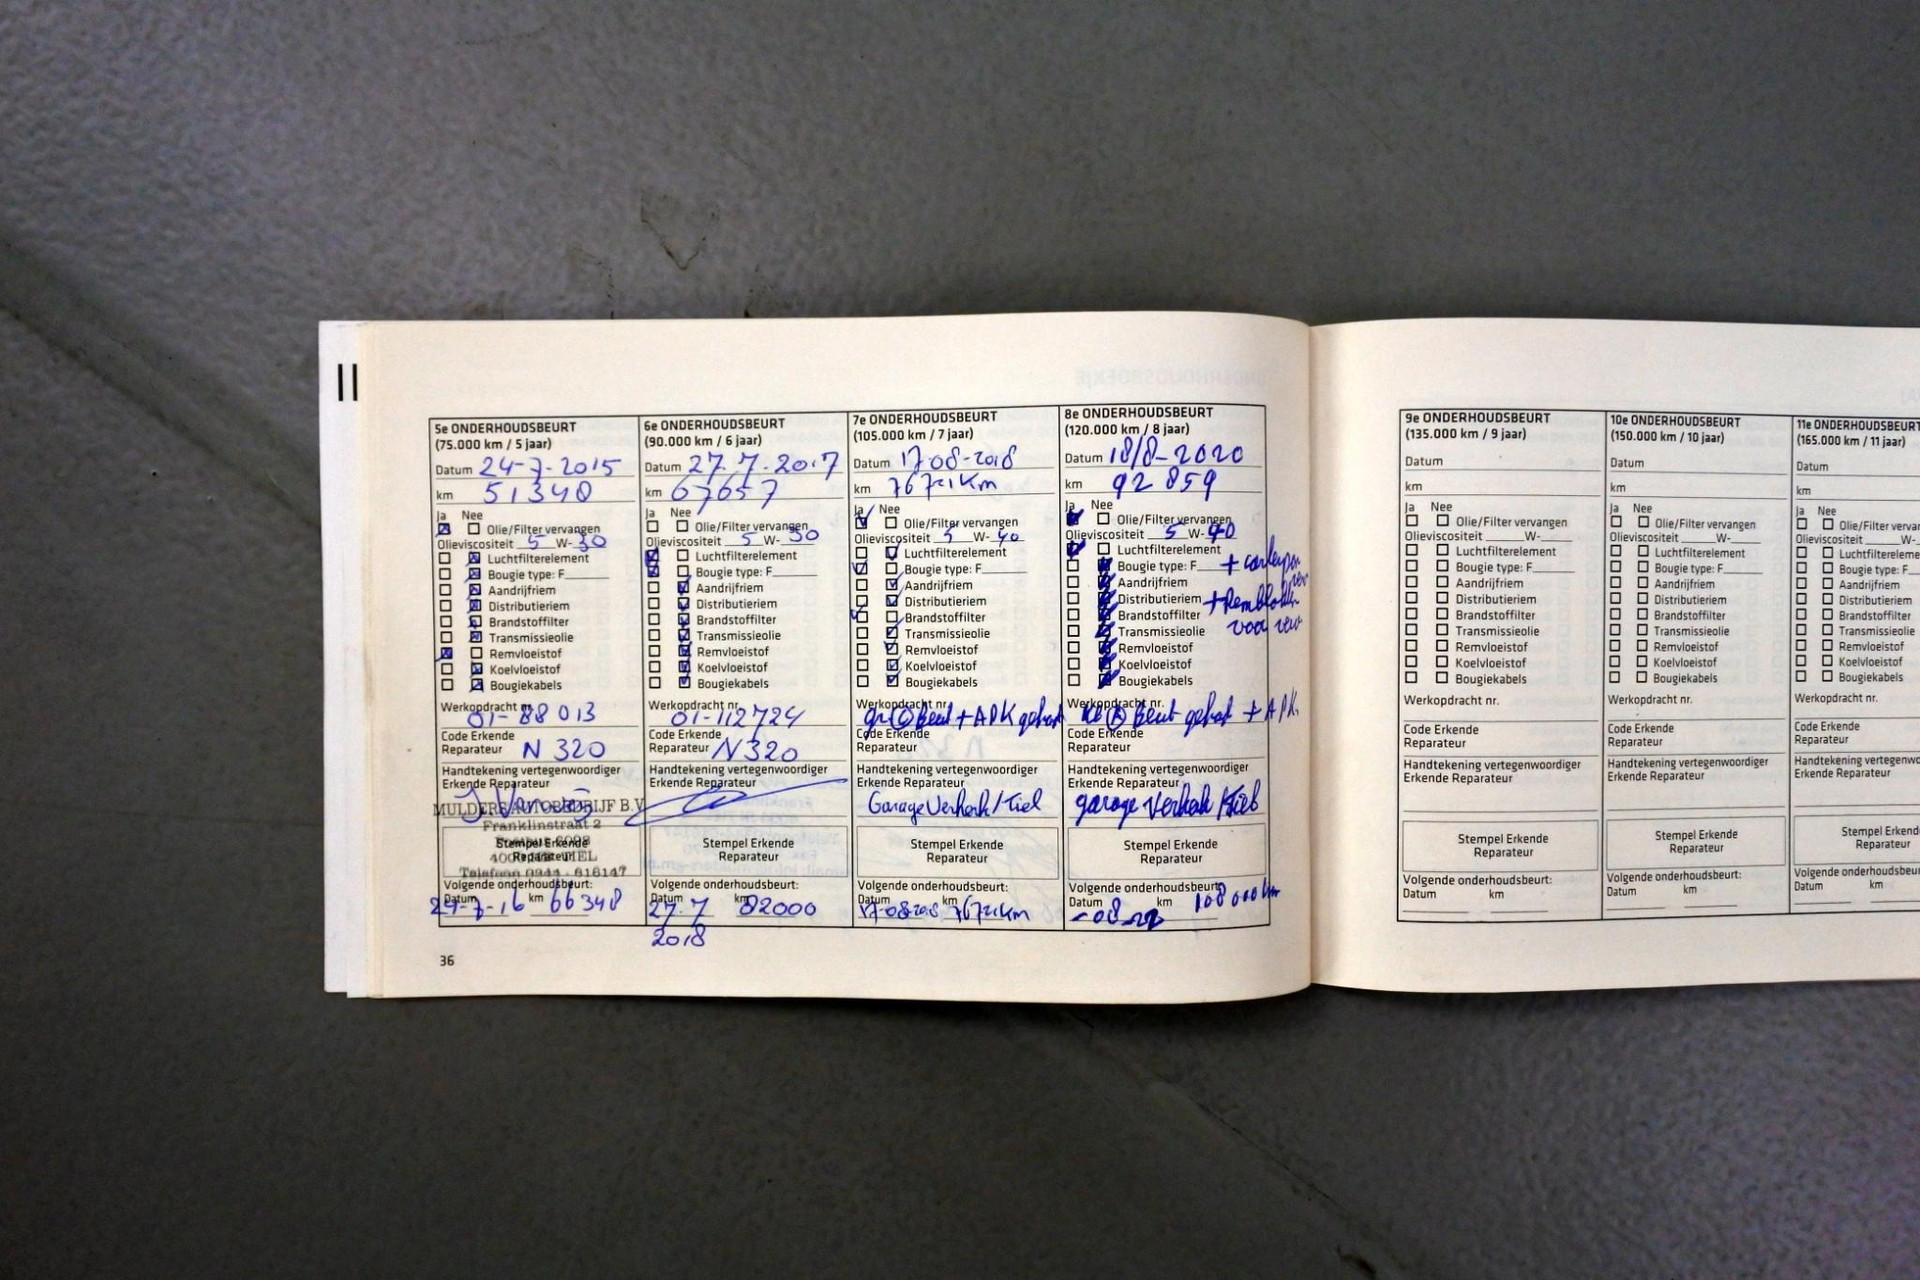 5e ONDERHOUDSBEURT
(75.000 km / 5 jaar)
Datum 24-7-2015
km 51340
Ja Nee
Olie/Filter vervangen
Olieviscositeit 5 W-30
Luchtfilterelement
Bougie type: F
Aandrijfriem
Distributieriem
Brandstoffilter
Transmissieolie
Remvloeistof
Koelvloeistof
Bougiekabels
Werkopdracht nr.
01-88013
Code Erkende
Reparateur N 320
Handtekening vertegenwoordiger
Erkende Reparateur
MULDERS AUTOBEDRIJF B.V.
Franklinstraat 2
Stempel Erkende
Reparateur
TIEL
Telefoon 0344 - 616147
Volgende onderhoudsbeurt:
Datum km
24-7-16 66348
6e ONDERHOUDSBEURT
(90.000 km / 6 jaar)
Datum 27.7.2017
km 67657
Ja Nee
Olie/Filter vervangen
Olieviscositeit 5 W-30
Luchtfilterelement
Bougie type: F
Aandrijfriem
Distributieriem
Brandstoffilter
Transmissieolie
Remvloeistof
Koelvloeistof
Bougiekabels
Werkopdracht nr.
01-112724
Code Erkende
Reparateur N320
Handtekening vertegenwoordiger
Erkende Reparateur
Stempel Erkende
Reparateur
Volgende onderhoudsbeurt:
Datum km
27.7 82000
2018
7e ONDERHOUDSBEURT
(105.000 km / 7 jaar)
Datum 17-08-2018
km
Ja Nee
Olie/Filter vervangen
Olieviscositeit 5 W-40
Luchtfilterelement
Bougie type: F
Aandrijfriem
Distributieriem
Brandstoffilter
Transmissieolie
Remvloeistof
Koelvloeistof
Bougiekabels
Werkopdracht nr.
Beurt + APK gehad
Code Erkende
Reparateur
Handtekening vertegenwoordiger
Erkende Reparateur
Garage Verkerk / Tiel
Stempel Erkende
Reparateur
Volgende onderhoudsbeurt:
Datum km
17-08-2018
8e ONDERHOUDSBEURT
(120.000 km / 8 jaar)
Datum 18/8-2020
km 92 859
Ja Nee
Olie/Filter vervangen
Olieviscositeit 5 W-40
Luchtfilterelement
Bougie type: F
Aandrijfriem
Distributieriem + Remblokken
Brandstoffilter
Transmissieolie voor
Remvloeistof
Koelvloeistof
Bougiekabels
Werkopdracht nr.
Beurt gehad + APK.
Code Erkende
Reparateur
Handtekening vertegenwoordiger
Erkende Reparateur
garage Verkerk / Tiel
Stempel Erkende
Reparateur
Volgende onderhoudsbeurt:
Datum km 108000 km
36
9e ONDERHOUDSBEURT
(135.000 km / 9 jaar)
Datum
km
Ja Nee
Olie/Filter vervangen
Olieviscositeit W-
Luchtfilterelement
Bougie type: F
Aandrijfriem
Distributieriem
Brandstoffilter
Transmissieolie
Remvloeistof
Koelvloeistof
Bougiekabels
Werkopdracht nr.
Code Erkende
Reparateur
Handtekening vertegenwoordiger
Erkende Reparateur
Stempel Erkende
Reparateur
Volgende onderhoudsbeurt:
Datum km
10e ONDERHOUDSBEURT
(150.000 km / 10 jaar)
Datum
km
Ja Nee
Olie/Filter vervangen
Olieviscositeit W-
Luchtfilterelement
Bougie type: F
Aandrijfriem
Distributieriem
Brandstoffilter
Transmissieolie
Remvloeistof
Koelvloeistof
Bougiekabels
Werkopdracht nr.
Code Erkende
Reparateur
Handtekening vertegenwoordiger
Erkende Reparateur
Stempel Erkende
Reparateur
Volgende onderhoudsbeurt:
Datum km
11e ONDERHOUDSBEURT
(165.000 km / 11 jaar)
Datum
km
Ja Nee
Olie/Filter vervangen
Olieviscositeit W-
Luchtfilterelement
Bougie type: F
Aandrijfriem
Distributieriem
Brandstoffilter
Transmissieolie
Remvloeistof
Koelvloeistof
Bougiekabels
Werkopdracht nr.
Code Erkende
Reparateur
Handtekening
Erkende Reparateur
Stempel
Reparateur
Volgende onderhoudsbeurt:
Datum km